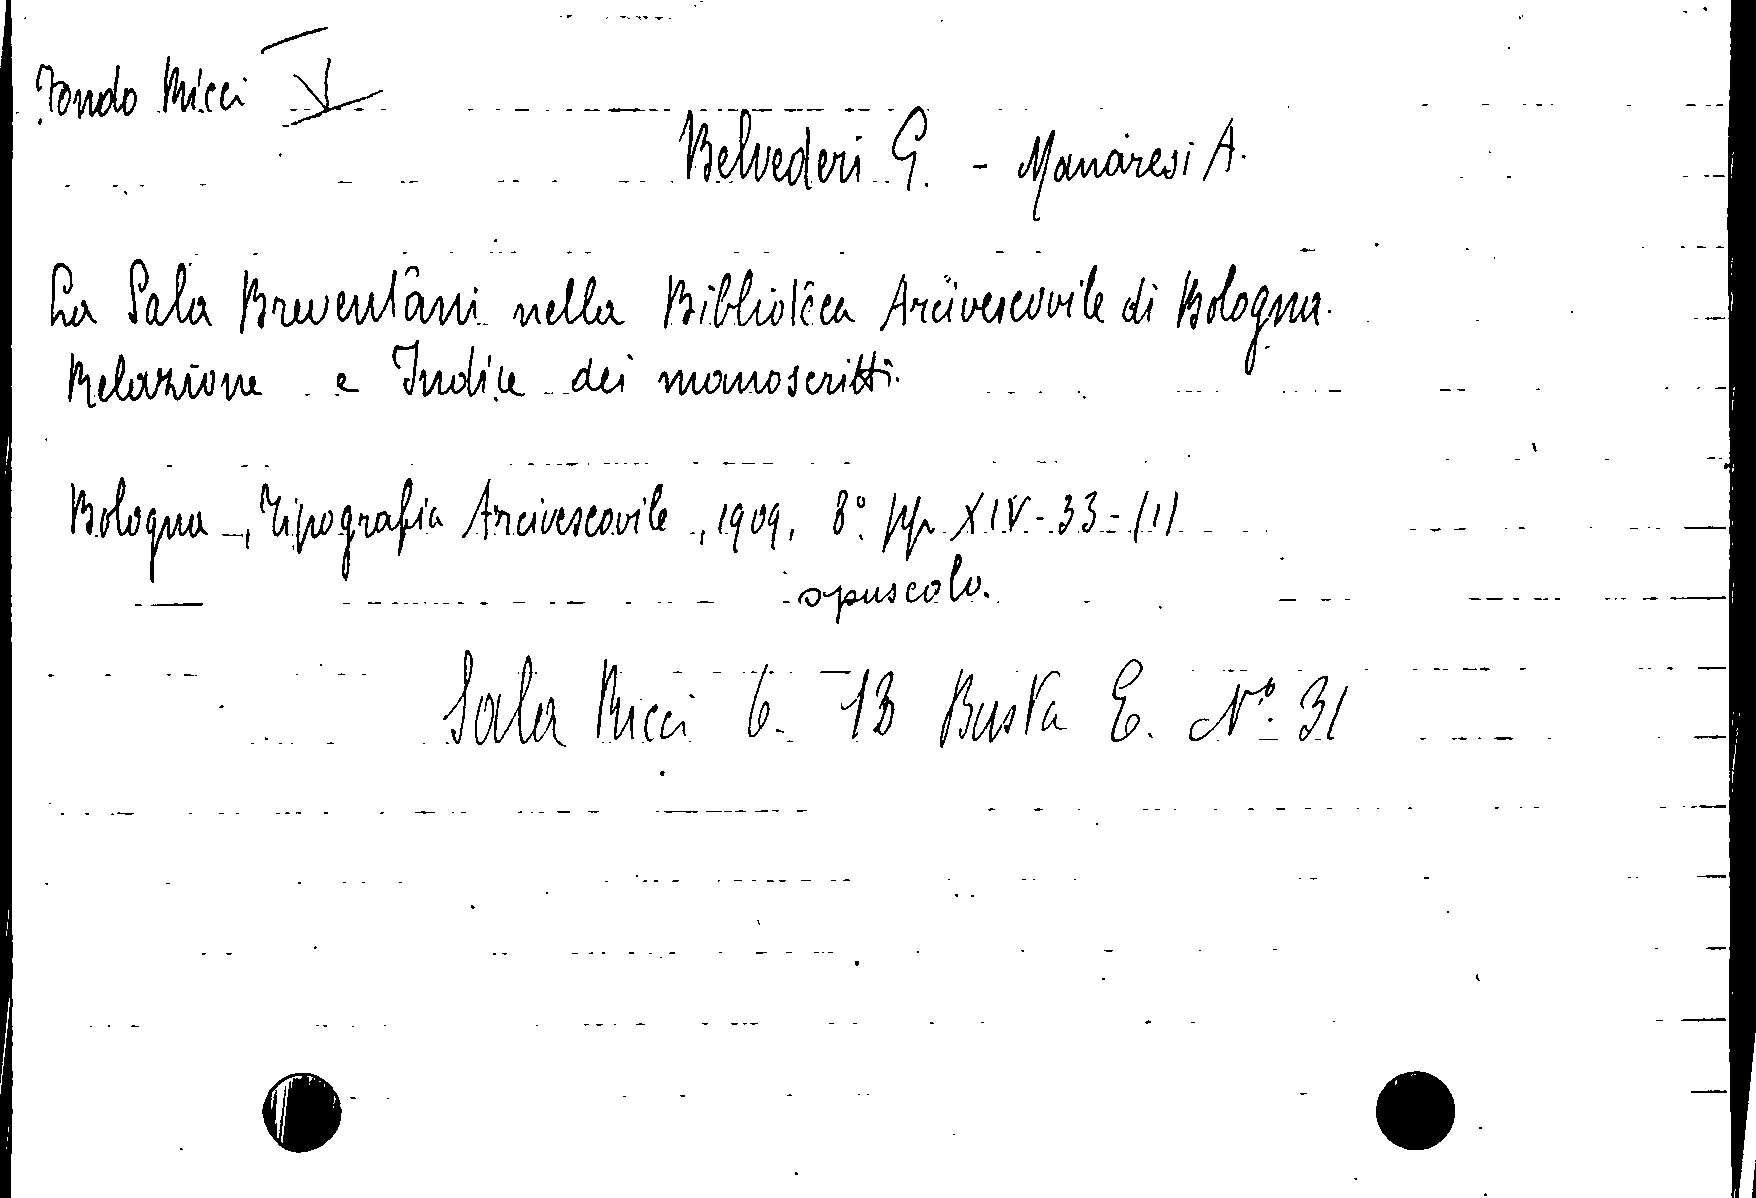 Fondo Ricci V
Belvederi G. - Manaresi A.
La Sala Breventani nella Biblioteca Arcivescovile di Bologna.
Relazione e Indice dei manoscritti.
Bologna, Tipografia Arcivescovile, 1909, 8° pp XIV-33-(1)
opuscolo.
Sala Ricci 6. 13 Busta E. N° 31